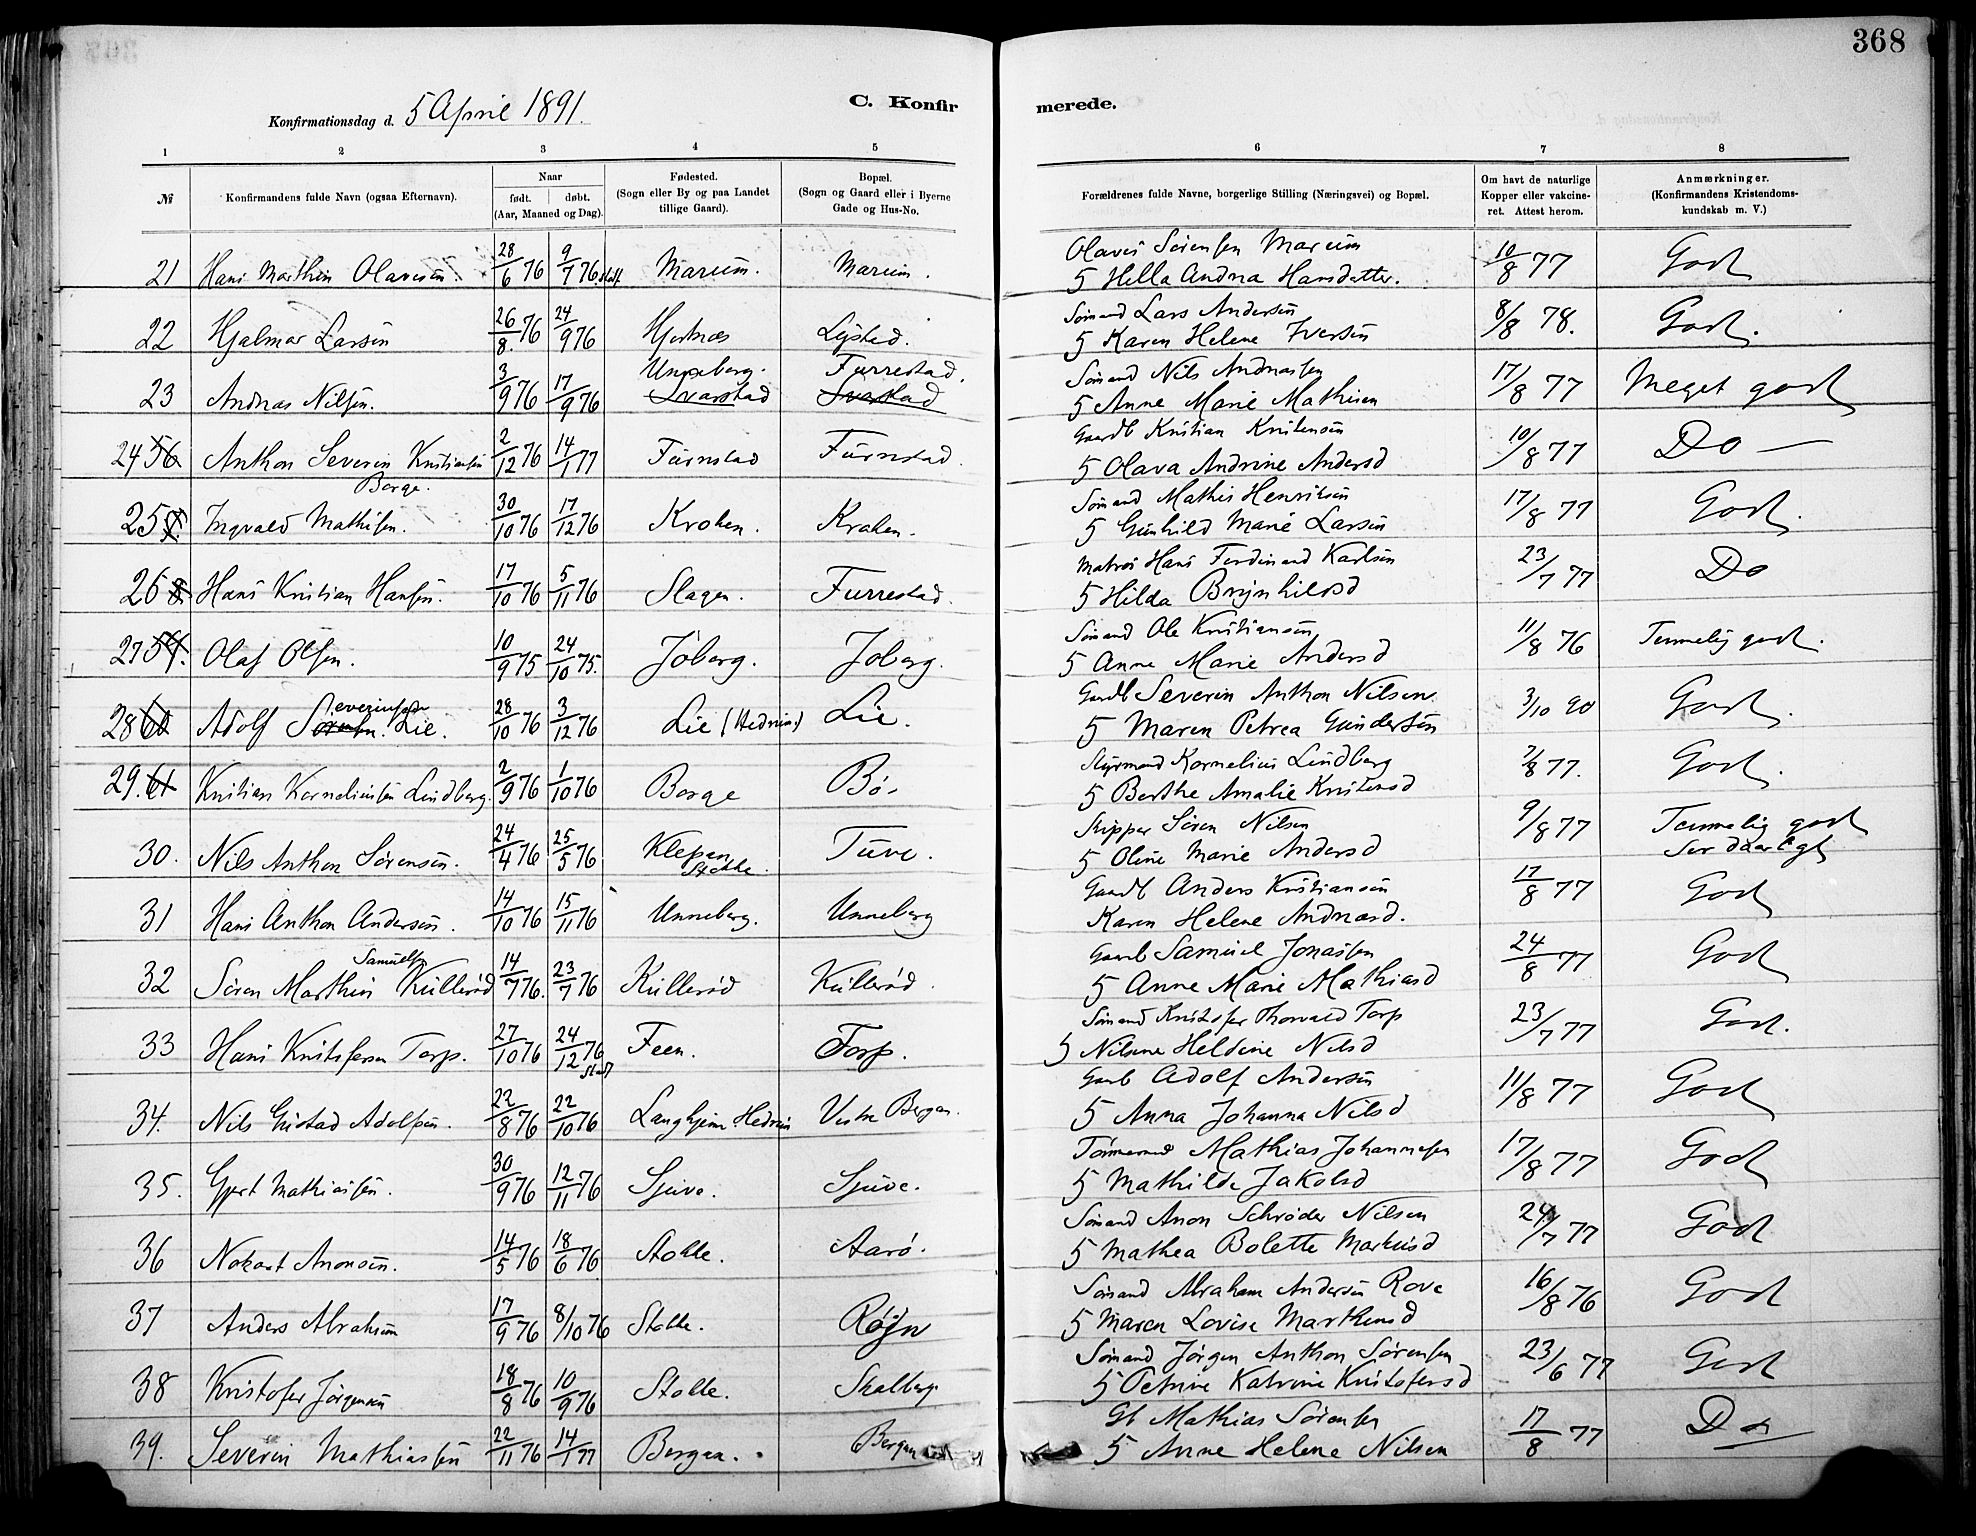 368
Konfirmationsdag d. 5 April 1891.
C. Konfir
merede.
1 2 3 4 5 6 7 8
№
Konfirmandens fulde Navn (ogsaa Efternavn).
Naar
født. døbt.
(Aar, Maaned og Dag).
Fødested.
(Sogn eller By og paa Landet
tillige Gaard).
Bopæl.
(Sogn og Gaard eller i Byerne
Gade og Hus-No.
Forældrenes fulde Navne, borgerlige Stilling (Næringsvei) og Bopæl.
Om havt de naturlige
Kopper eller vakcine-
ret. Attest herom.
Anmærkninger.
(Konfirmandens Kristendoms-
kundskab m. V.)
21 Hans Marthin Olavesen. 28/6 76 9/7 76 Marum. Marum. Olaves Sørensen Marum 10/8 77 God
5 Hella Andrea Hansdatter.
22 Hjalmar Larsen 26/8 76 24/9 76 Hjertnes Lystad. Sømand Lars Andersen 8/8 78. God.
5 Karen Helene Iversen
23 Andreas Nilsen. 3/9 76 17/9 76 Unneberg. Svarstad Furrestad. Svarstad Sømand Nils Andreassen 17/8 77 Meget god
5 Anne Marie Mathisen
24 56 Anthon Severin Kristiansen 2/12 76 14/1 77 Furustad Furustad. Gaardb Kristian Kristensen 10/8 77 Do —
5 Olava Andrine Andersd
25 Ingvald Mathisen. Borge. 30/10 76 17/12 76 Kroken. Kraken. Sømand Mathis Henriksen 17/8 77 God.
5 Gunhild Marie Larsen
26 Hans Kristian Hansen. 17/10 76 5/11 76 Slagen. Furrestad. Matros Hans Ferdinand Karlsen 23/7 77 Do
5 Hilda Brynhildsd
27 59. Olaf Olsen. 10/9 75 24/10 75. Joberg. Joberg. Sømand Ole Kristiansen 11/8 76 Temmelig god.
5 Anne Marie Andersd
28 60 Adolf Severinsen Lie. 28/10 76 3/12 76 Lie (Hedrum) Lie. Gaardb Severin Anthon Nilsen 3/10 90 God.
5 Maren Petrea Gundersen
29. 61 Kristian Korneliussen Lindberg. 2/9 76 1/10 76 Borge Bø. Styrmand Kornelius Lindberg 2/8 77. God.
5 Berthe Amalie Kristensd
30. Nils Anthon Sørensen. 24/4 76 25/5 76 Klepan Stokke. Tuve. Skipper Søren Nilsen 9/8 77 Temmelig god
5 Oline Marie Andersd Ser daarligt
31 Hans Anthon Andersen. 14/10 76 15/11 76 Unneberg. Unneberg Gaardb Anders Kristiansen 17/8 77 God
Karen Helene Andreasd.
32 Søren Marthin Samuelsen Kullerød 14/7 76. 23/7 76 Kullerød Kullerød. Gaardb Samuel Jonassen 24/8 77 God
5 Anne Marie Mathiasd
33 Hans Kristofersen Torp. 27/10 76 24/12 76 Feen. Torp. Sømand Kristofer Thorvald Torp 23/7 77 God.
5 Nilsine Heldine Nilsd
34. Nils Gustad Adolfsen. 22/8 76 22/10 76 Langhjem Hedrum Vestre Bergan. Gaardb Adolf Andersen 11/8 77 God
5 Anna Johanna Nilsd
35. Gjert Mathiassen. 30/9 76 12/11 76 Sjuve. Sjuve. Tømmermand Mathias Johannesen 17/8 77 God
5 Mathilde Jakobsd
36 Nokart Anonsen. 14/5 76 18/6 76 Stokke. Aarø. Sømand Anon Schrøder Nilsen 24/7 77 God
5 Mathea Bolette Markusd
37 Anders Abrahamsen 17/9 76 8/10 76 Stokke. Røjn Sømand Abraham Andersen Rove 16/8 76 God
5 Maren Lovise Marthinsd
38 Kristofer Jørgensen 18/8 76 10/9 76 Stokke. Skalberg Sømand Jørgen Anthon Sørensen 23/6 77 God
5 Petrine Katrine Kristofersd
39. Severin Mathiassen 22/11 76 14/1 77 Bergan. Bergan Gb Mathias Sørensen 17/8 77 Do
5 Anne Helene Nilsen